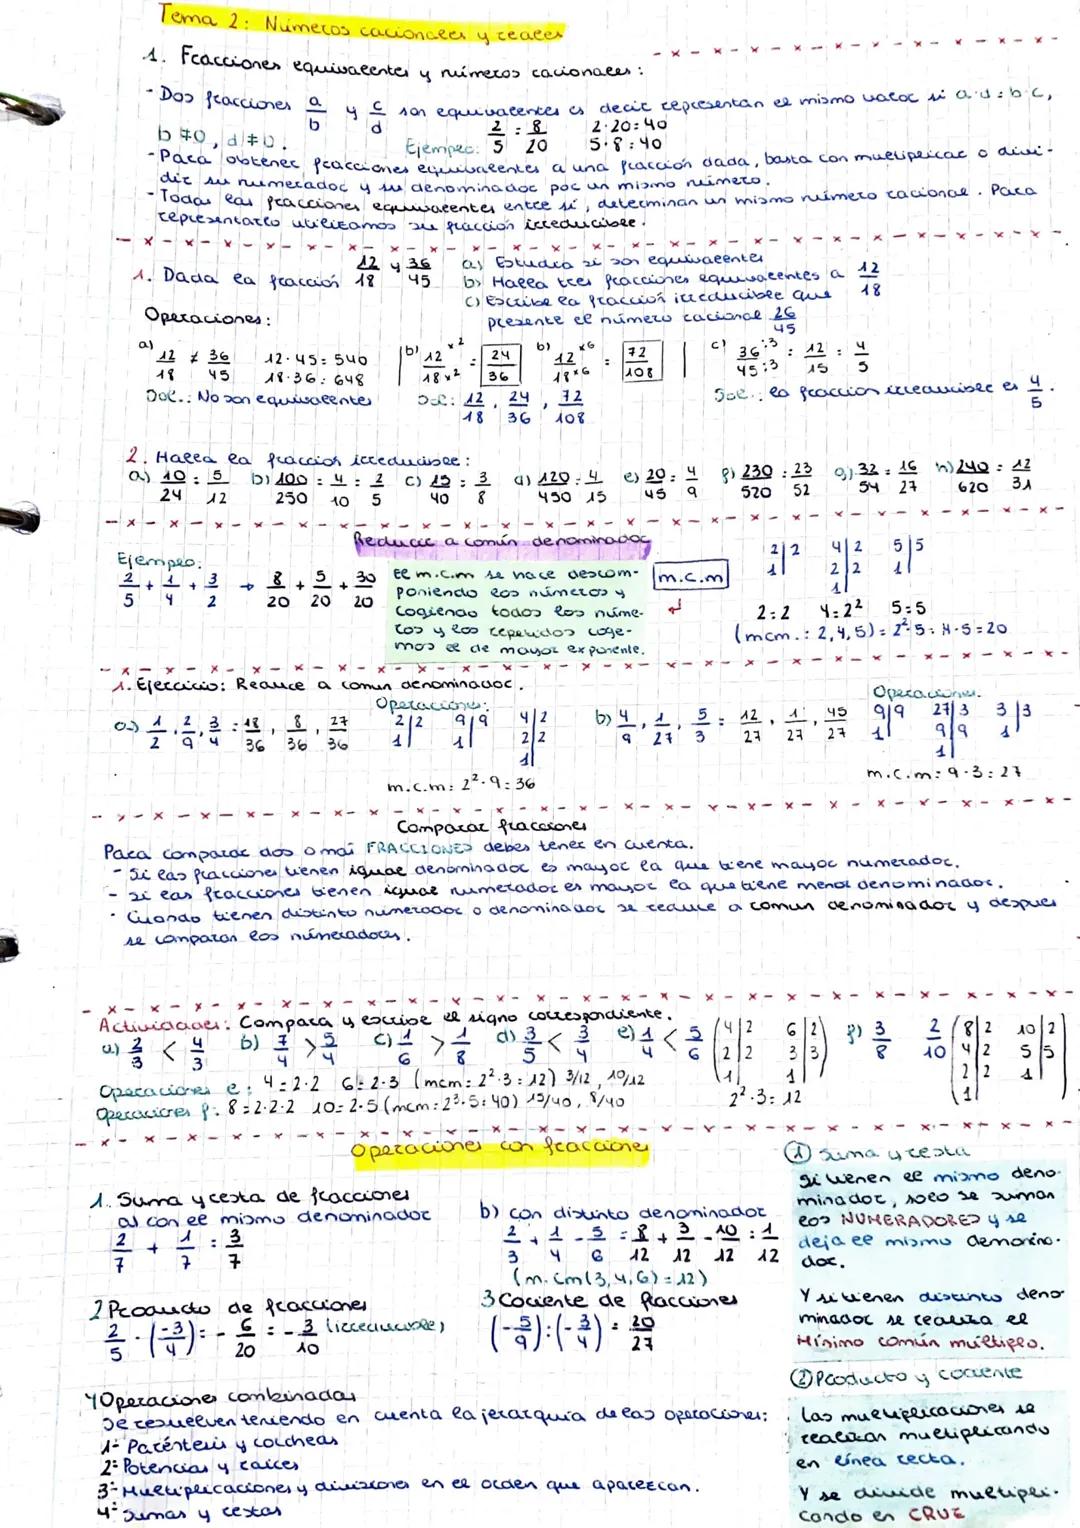 Tema 2: Números racionales y reales
1. Fracciones equivalentes y números racionales:
- Dos fracciones a/b y c/d son equivalentes es decir representan el mismo valor si a·d = b·c,
b ≠ 0, d ≠ 0.   Ejemplo: 2/5 = 8/20   2·20=40   5·8=40
- Para obtener fracciones equivalentes a una fracción dada, basta con multiplicar o divi-
dir su numerador y su denominador por un mismo número.
- Todas las fracciones equivalentes entre sí, determinan un mismo número racional. Para
representarlo utilizamos su fracción irreducible.
1. Dada la fracción 12/18 y 36/45
a) Estudia si son equivalentes
b) Halla tres fracciones equivalentes a 12/18
c) Escribe la fracción irreducible que
presente el número racional 26/45
Operaciones:
a) 12/18 ≠ 36/45   12·45=540   18·36=648
Sol.: No son equivalentes
b) 12/18 ×2/×2 = 24/36   b) 12/18 ×6/×6 = 72/108
Sol: 12/18, 24/36, 72/108
c) 36:3/45:3 = 12/15 = 4/5
Sol.: la fraccion irreducible es 4/5.
2. Halla la fracción irreducible:
a) 10/24 = 5/12   b) 100/250 = 4/10 = 2/5   c) 15/40 = 3/8   d) 120/450 = 4/15   e) 20/45 = 4/9   f) 230/520 = 23/52   g) 32/54 = 16/27   h) 240/620 = 12/31
Reducir a común denominador
Ejemplo:
2/5 + 1/4 + 3/2 → 8/20 + 5/20 + 30/20
El m.c.m se hace descom-
poniendo los números y
cogiendo todos los núme-
ros y los repetidos coge-
mos el de mayor exponente.
m.c.m
2|2   4|2   5|5
1|   2|2   1|
1|
2=2   4=2²   5=5
(mcm.: 2,4,5) = 2²·5 = 4·5=20
1. Ejercicio: Reduce a comun denominador.
a) 1/2, 2/9, 3/4 = 18/36, 8/36, 27/36
Operaciones:
2|2   9|9   4|2
1|   1|   2|2
1|
m.c.m: 2²·9=36
b) 4/9, 1/27, 5/3 = 12/27, 1/27, 45/27
Operaciones.
9|9   27|3   3|3
1|   9|9   1|
1|
m.c.m: 9·3=27
Comparar fracciones
Para comparar dos o mas FRACCIONES debes tener en cuenta.
- Si las fracciones tienen igual denominador es mayor la que tiene mayor numerador.
- si las fracciones tienen igual numerador es mayor la que tiene menor denominador.
· Cuando tienen distinto numerador o denominador se reduce a comun denominador y despues
se comparan los numeradores.
Actividades: Compara y escribe el signo correspondiente.
a) 2/3 < 4/3   b) 7/4 > 5/4   c) 1/6 > 1/8   d) 3/5 < 3/4   e) 1/4 < 5/6   (4|2   6|2)   f) 3/8   2/10   (8|2   10|2)
2|2   3|3   4|2   5|5
1|   1   2|2   1|
2²·3=12   1|
Operaciones e: 4=2·2   6=2·3 (mcm=2²·3=12) 3/12, 10/12
Operaciones f: 8=2·2·2   10=2·5 (mcm=2³·5=40) 15/40, 8/40
Operaciones con fracciones
1. Suma y resta de fracciones
a) con el mismo denominador
2/7 + 1/7 = 3/7
b) con distinto denominador
2/3 + 1/4 - 5/6 = 8/12 + 3/12 - 10/12 = 1/12
(m.cm(3,4,6)=12)
2 Producto de fracciones
2/5 · (-3/4) = - 6/20 = - 3/10 (irreducible)
3 Cociente de fracciones
(-5/9) : (-3/4) = 20/27
4 Operaciones combinadas
Se resuelven teniendo en cuenta la jerarquía de las operaciones:
1º Paréntesis y corcheas
2º Potencias y raices
3º Multiplicaciones y divisiones en el orden que aparezcan.
4º Sumas y restas
① Suma y resta
Si tienen el mismo deno-
minador, solo se suman
los NUMERADORES y se
deja el mismo denomina-
dor.
Y si tienen distinto deno
minador se realiza el
Mínimo común múltiplo.
② Producto y cociente
Las multiplicaciones se
realizan multiplicando
en línea recta.
Y se divide multipli-
cando en CRUZ